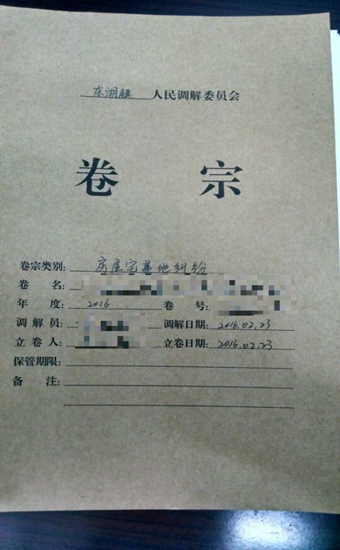 东湖镇 人民调解委员会
卷宗
卷宗类别: 房屋宅基地纠纷
卷 名:
年 度: 2016 卷 号:
调 解 员: 调解日期: 2016.02.23
立 卷 人: 立卷日期: 2016.02.23
保管期限:
备 注: